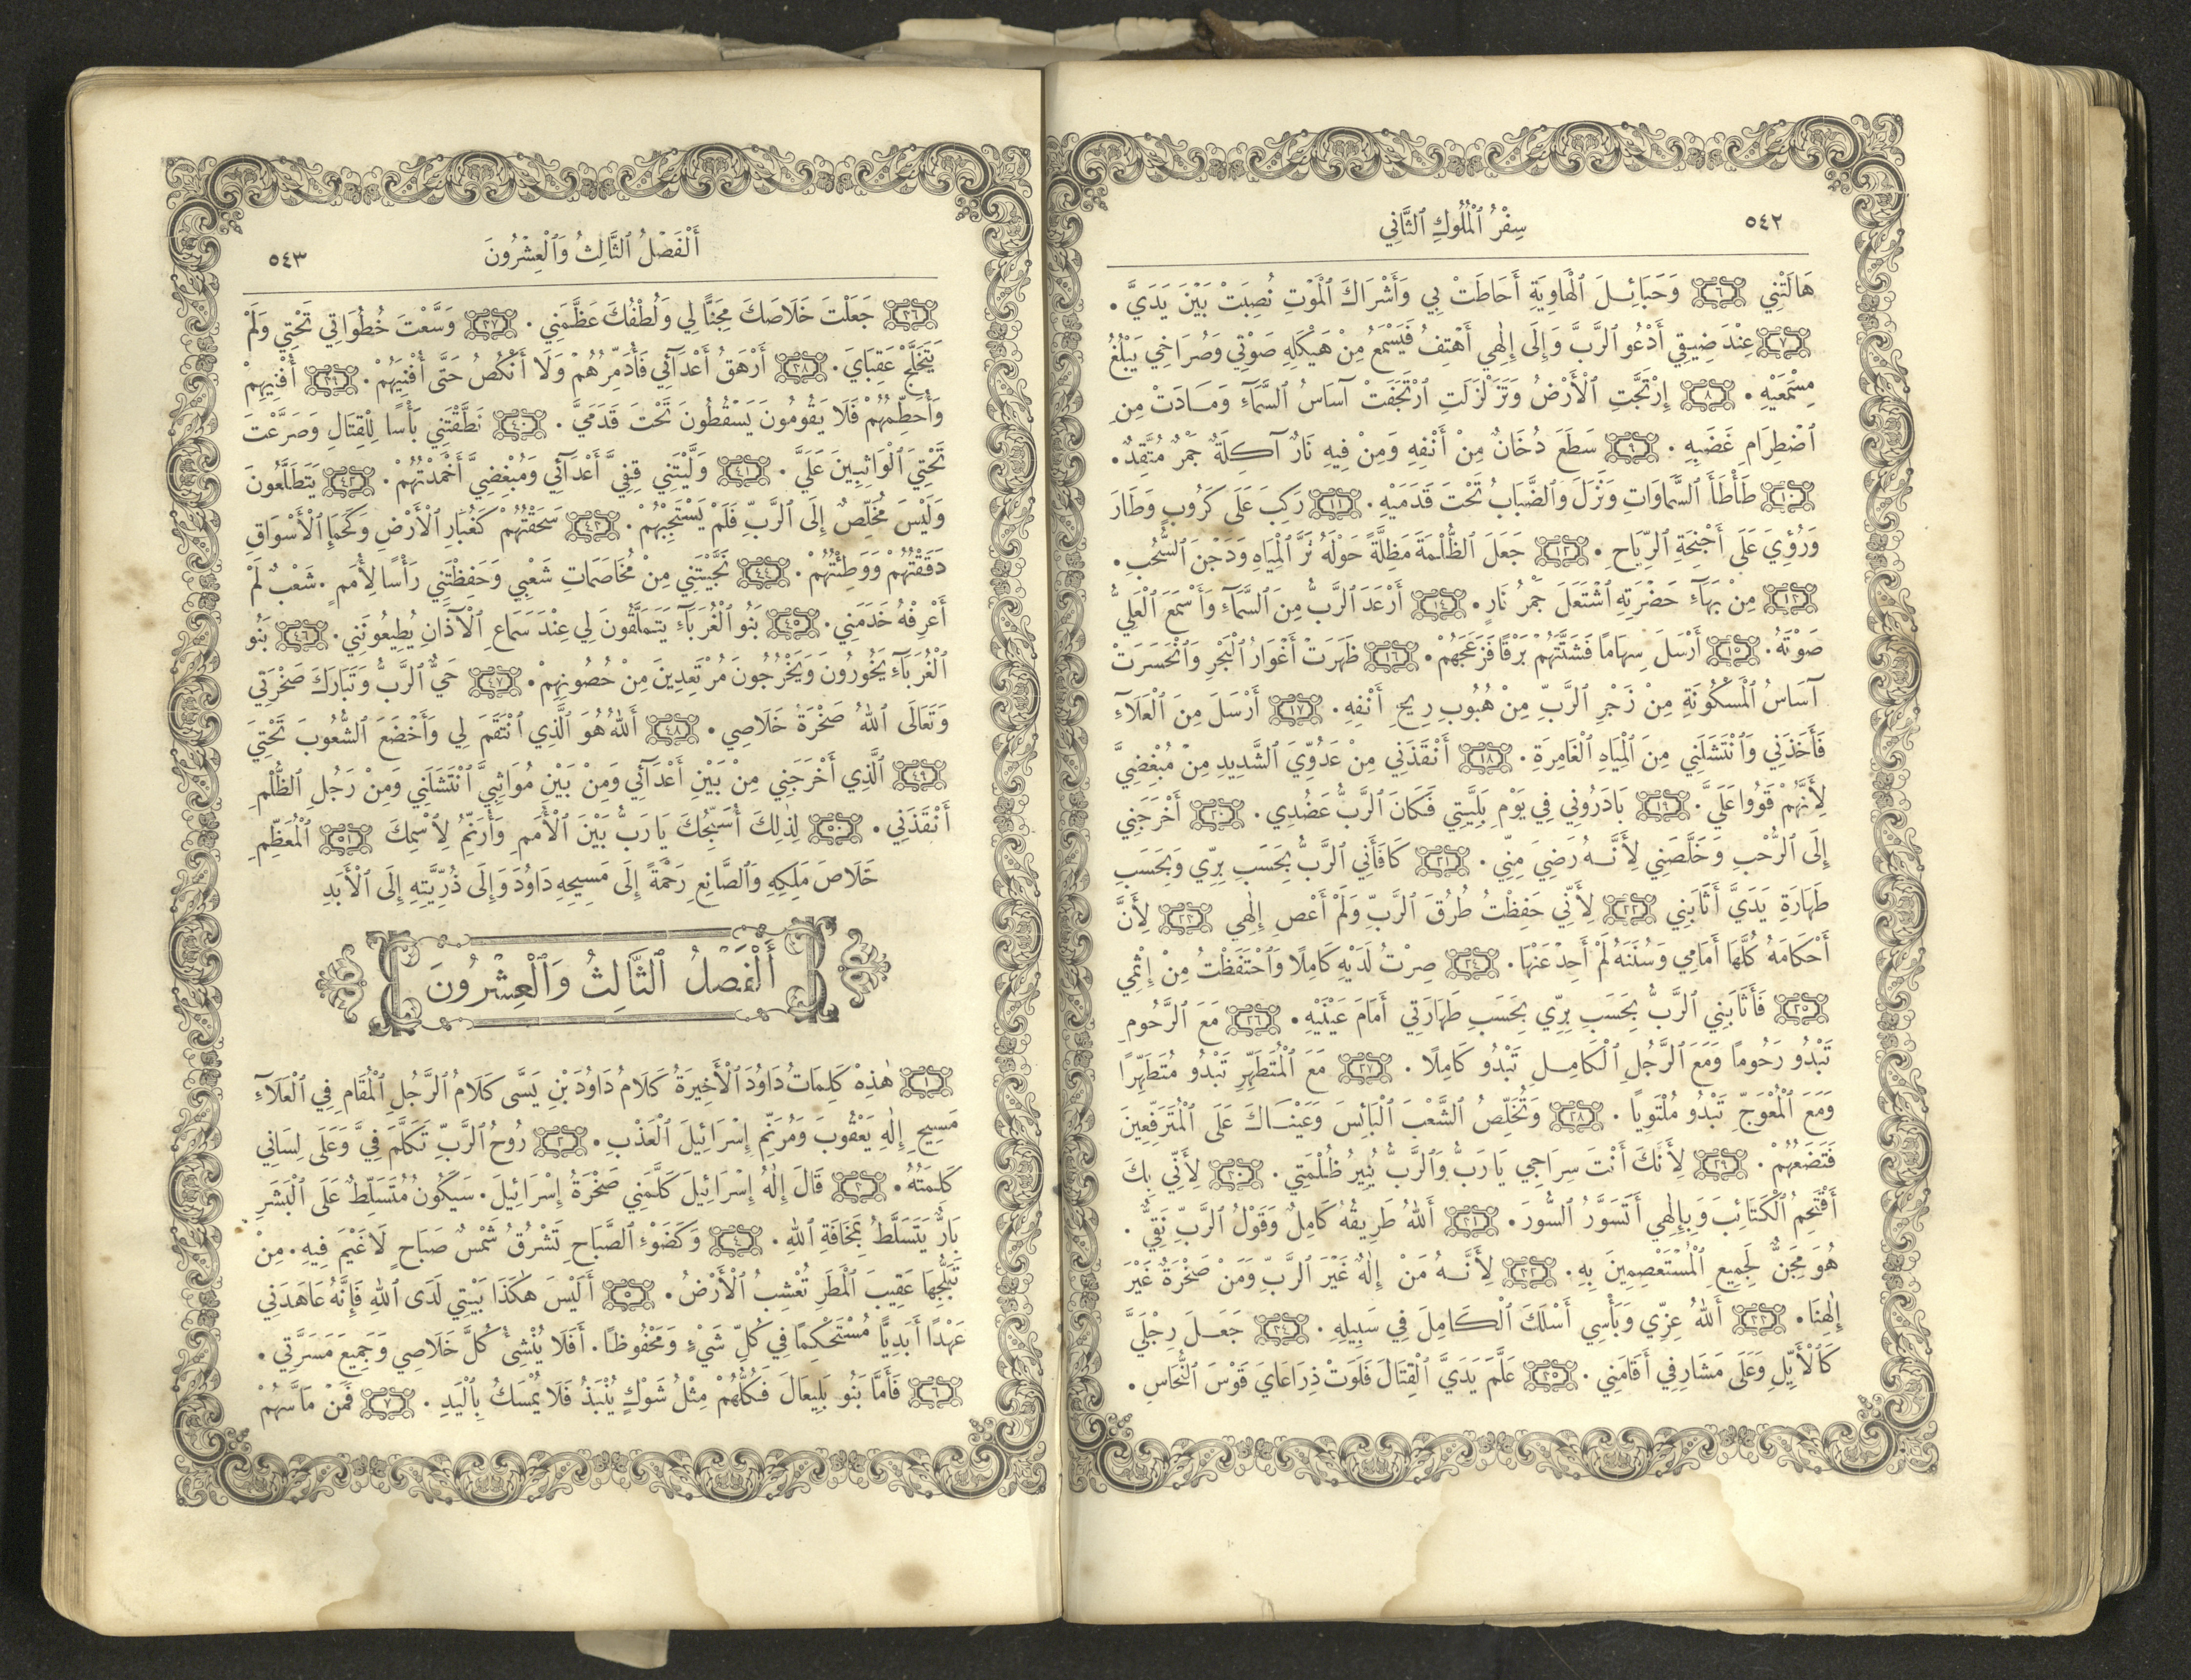 ٥٤٢
سِفْرُ ٱلْمُلُوكِ ٱلثَّانِي
هَالَتْنِي ٦ وَحَبَائِلَ ٱلْهَاوِيَةِ أَحَاطَتْ بِي وَأَشْرَاكَ ٱلْمَوْتِ نُصِبَتْ بَيْنَ يَدَيَّ.
٧ عِنْدَ ضِيقِي أَدْعُو ٱلرَّبَّ وَإِلَى إِلٰهِي أَهْتِفُ فَيَسْمَعُ مِنْ هَيْكَلِهِ صَوْتِي وَصُرَاخِي يَبْلُغُ
مِسْمَعَيْهِ. ٨ إِرْتَجَّتِ ٱلْأَرْضُ وَتَزَلْزَلَتِ ٱرْتَجَفَتْ آسَاسُ ٱلسَّمَآءِ وَمَادَتْ مِنِ
ٱضْطِرَامِ غَضَبِهِ. ٩ سَطَعَ دُخَانٌ مِنْ أَنْفِهِ وَمِنْ فِيهِ نَارٌ آكِلَةٌ جَمْرٌ مُتَّقِدٌ.
١٠ طَأْطَأَ ٱلسَّمَاوَاتِ وَنَزَلَ وَٱلضَّبَابُ تَحْتَ قَدَمَيْهِ. ١١ رَكِبَ عَلَى كَرُوبٍ وَطَارَ
وَرُؤِيَ عَلَى أَجْنِحَةِ ٱلرِّيَاحِ. ١٢ جَعَلَ ٱلظُّلْمَةَ مَظِلَّةً حَوْلَهُ ثَرَّ ٱلْمِيَاهِ وَدَجْنَ ٱلسُّحُبِ.
١٣ مِنْ بَهَآءِ حَضْرَتِهِ ٱشْتَعَلَ جَمْرُ نَارٍ. ١٤ أَرْعَدَ ٱلرَّبُّ مِنَ ٱلسَّمَآءِ وَأَسْمَعَ ٱلْعَلِيُّ
صَوْتَهُ. ١٥ أَرْسَلَ سِهَامًا فَشَتَّتَهُمْ بَرْقًا فَزَعَجَهُمْ. ١٦ ظَهَرَتْ أَغْوَارُ ٱلْبَحْرِ وَٱنْحَسَرَتْ
آسَاسُ ٱلْمَسْكُونَةِ مِنْ زَجْرِ ٱلرَّبِّ مِنْ هُبُوبِ رِيحِ أَنْفِهِ. ١٧ أَرْسَلَ مِنَ ٱلْعَلَآءِ
فَأَخَذَنِي وَٱنْتَشَلَنِي مِنَ ٱلْمِيَاهِ ٱلْغَامِرَةِ. ١٨ أَنْقَذَنِي مِنْ عَدُوِّيَ ٱلشَّدِيدِ مِنْ مُبْغِضِيَّ
لِأَنَّهُمْ قَوُوا عَلَيَّ. ١٩ بَادَرُونِي فِي يَوْمِ بَلِيَّتِي فَكَانَ ٱلرَّبُّ عَضُدِي. ٢٠ أَخْرَجَنِي
إِلَى ٱلرُّحْبِ وَخَلَّصَنِي لِأَنَّهُ رَضِيَ مِنِّي. ٢١ كَافَأَنِي ٱلرَّبُّ بِحَسَبِ بِرِّي وَبِحَسَبِ
طَهَارَةِ يَدَيَّ أَثَابَنِي ٢٢ لِأَنِّي حَفِظْتُ طُرُقَ ٱلرَّبِّ وَلَمْ أَعْصِ إِلٰهِي ٢٣ لِأَنَّ
أَحْكَامَهُ كُلَّهَا أَمَامِي وَسُنَنَهُ لَمْ أَحِدْ عَنْهَا. ٢٤ صِرْتُ لَدَيْهِ كَامِلًا وَٱحْتَفَظْتُ مِنْ إِثْمِي
٢٥ فَأَثَابَنِي ٱلرَّبُّ بِحَسَبِ بِرِّي بِحَسَبِ طَهَارَتِي أَمَامَ عَيْنَيْهِ. ٢٦ مَعَ ٱلرَّحُومِ
تَبْدُو رَحُومًا وَمَعَ ٱلرَّجُلِ ٱلْكَامِلِ تَبْدُو كَامِلًا. ٢٧ مَعَ ٱلْمُتَطَهِّرِ تَبْدُو مُتَطَهِّرًا
وَمَعَ ٱلْمُعْوَجِّ تَبْدُو مُلْتَوِيًا. ٢٨ وَتُخَلِّصُ ٱلشَّعْبَ ٱلْبَائِسَ وَعَيْنَاكَ عَلَى ٱلْمُتَرَفِّعِينَ
فَتَضَعُهُمْ. ٢٩ لِأَنَّكَ أَنْتَ سِرَاجِي يَا رَبُّ وَٱلرَّبُّ يُنِيرُ ظُلْمَتِي. ٣٠ لِأَنِّي بِكَ
أَقْتَحِمُ ٱلْكَتَائِبَ وَبِإِلٰهِي أَتَسَوَّرُ ٱلسُّورَ. ٣١ أَللهُ طَرِيقُهُ كَامِلٌ وَقَوْلُ ٱلرَّبِّ نَقِيٌّ.
هُوَ مِجَنٌّ لِجَمِيعِ ٱلْمُسْتَعْصِمِينَ بِهِ. ٣٢ لِأَنَّهُ مَنْ إِلٰهٌ غَيْرَ ٱلرَّبِّ وَمَنْ صَخْرَةٌ غَيْرَ
إِلٰهِنَا. ٣٣ أَللهُ عِزِّي وَبَأْسِي أَسْلَكَ ٱلْكَامِلَ فِي سَبِيلِهِ. ٣٤ جَعَلَ رِجْلَيَّ
كَٱلْأَيِّلِ وَعَلَى مَشَارِفِي أَقَامَنِي. ٣٥ عَلَّمَ يَدَيَّ ٱلْقِتَالَ فَلَوَتْ ذِرَاعَايَ قَوْسَ ٱلنُّحَاسِ.
أَلْفَصْلُ ٱلثَّالِثُ وَٱلْعِشْرُونَ
٥٤٣
٣٦ جَعَلْتَ خَلَاصَكَ مِجَنًّا لِي وَلُطْفُكَ عَظَّمَنِي. ٣٧ وَسَّعْتَ خُطُوَاتِي تَحْتِي وَلَمْ
يَتَخَلَّجْ عَقِبَايَ. ٣٨ أَرْهَقُ أَعْدَآئِي فَأُدَمِّرُهُمْ وَلَا أَنْكُصُ حَتَّى أُفْنِيَهُمْ. ٣٩ أُفْنِيهِمْ
وَأُحَطِّمُهُمْ فَلَا يَقُومُونَ يَسْقُطُونَ تَحْتَ قَدَمَيَّ. ٤٠ نَطَّقْتَنِي بَأْسًا لِلْقِتَالِ وَصَرَّعْتَ
تَحْتِيَ ٱلْوَاثِبِينَ عَلَيَّ. ٤١ وَلَّيْتَنِي قِفِيَّ أَعْدَآئِي وَمُبْغِضِيَّ أَخْمَدْتُهُمْ. ٤٢ يَتَطَلَّعُونَ
وَلَيْسَ مُخَلِّصٌ إِلَى ٱلرَّبِّ فَلَمْ يَسْتَجِبْهُمْ. ٤٣ سَحَقْتُهُمْ كَغُبَارِ ٱلْأَرْضِ وَكَحَمَإِ ٱلْأَسْوَاقِ
دَقَقْتُهُمْ وَوَطِئْتُهُمْ. ٤٤ نَجَّيْتَنِي مِنْ مُخَاصَمَاتِ شَعْبِي وَحَفِظْتَنِي رَأْسًا لِأُمَمٍ. شَعْبٌ لَمْ
أَعْرِفْهُ خَدَمَنِي. ٤٥ بَنُو ٱلْغُرَبَآءِ يَتَمَلَّقُونَ لِي عِنْدَ سَمَاعِ ٱلْآذَانِ يُطِيعُونَنِي. ٤٦ بَنُو
ٱلْغُرَبَآءِ يَخُورُونَ وَيَخْرُجُونَ مُرْتَعِدِينَ مِنْ حُصُونِهِمْ. ٤٧ حَيٌّ ٱلرَّبُّ وَتَبَارَكَ صَخْرَتِي
وَتَعَالَى ٱللهُ صَخْرَةُ خَلَاصِي. ٤٨ أَللهُ هُوَ ٱلَّذِي ٱنْتَقَمَ لِي وَأَخْضَعَ ٱلشُّعُوبَ تَحْتِيَ
٤٩ ٱلَّذِي أَخْرَجَنِي مِنْ بَيْنِ أَعْدَآئِي وَمِنْ بَيْنِ مُوَاثِبِيَّ ٱنْتَشَلَنِي وَمِنْ رَجُلِ ٱلظُّلْمِ
أَنْقَذَنِي. ٥٠ لِذٰلِكَ أُسَبِّحُكَ يَا رَبُّ بَيْنَ ٱلْأُمَمِ وَأُرَنِّمُ لِٱسْمِكَ ٥١ ٱلْمُعَظِّمِ
خَلَاصَ مَلِكِهِ وَٱلصَّانِعِ رَحْمَةً إِلَى مَسِيحِهِ دَاوُدَ وَإِلَى ذُرِّيَّتِهِ إِلَى ٱلْأَبَدِ
أَلْفَصْلُ ٱلثَّالِثُ وَٱلْعِشْرُونَ
١ هٰذِهْ كَلِمَاتُ دَاوُدَ ٱلْأَخِيرَةُ كَلَامُ دَاوُدَ بْنِ يَسَّى كَلَامُ ٱلرَّجُلِ ٱلْمُقَامِ فِي ٱلْعَلَآءِ
مَسِيحِ إِلٰهِ يَعْقُوبَ وَمُرَنِّمِ إِسْرَائِيلَ ٱلْعَذْبِ. ٢ رُوحُ ٱلرَّبِّ تَكَلَّمَ فِيَّ وَعَلَى لِسَانِي
كَلِمَتُهُ. ٣ قَالَ إِلٰهُ إِسْرَائِيلَ كَلَّمَنِي صَخْرَةُ إِسْرَائِيلَ. سَيَكُونُ مُتَسَلِّطٌ عَلَى ٱلْبَشَرِ
بَارٌّ يَتَسَلَّطُ بِمَخَافَةِ ٱللهِ. ٤ وَكَضَوْءِ ٱلصَّبَاحِ تَشْرُقُ شَمْسُ صَبَاحٍ لَا غَيْمَ فِيهِ. مِنْ
تَبَلُّجِهَا عَقِيبَ ٱلْمَطَرِ تُعْشِبُ ٱلْأَرْضُ. ٥ أَلَيْسَ هٰكَذَا بَيْتِي لَدَى ٱللهِ فَإِنَّهُ عَاهَدَنِي
عَهْدًا أَبَدِيًّا مُسْتَحْكِمًا فِي كُلِّ شَيْءٍ وَمَحْفُوظًا. أَفَلَا يُنْشِئُ كُلَّ خَلَاصِي وَجَمِيعَ مَسَرَّتِي.
٦ فَأَمَّا بَنُو بَلِيعَالَ فَكُلُّهُمْ مِثْلُ شَوْكٍ يُنْبَذُ فَلَا يُمْسَكُ بِٱلْيَدِ. ٧ فَمَنْ مَاسَّهُمْ